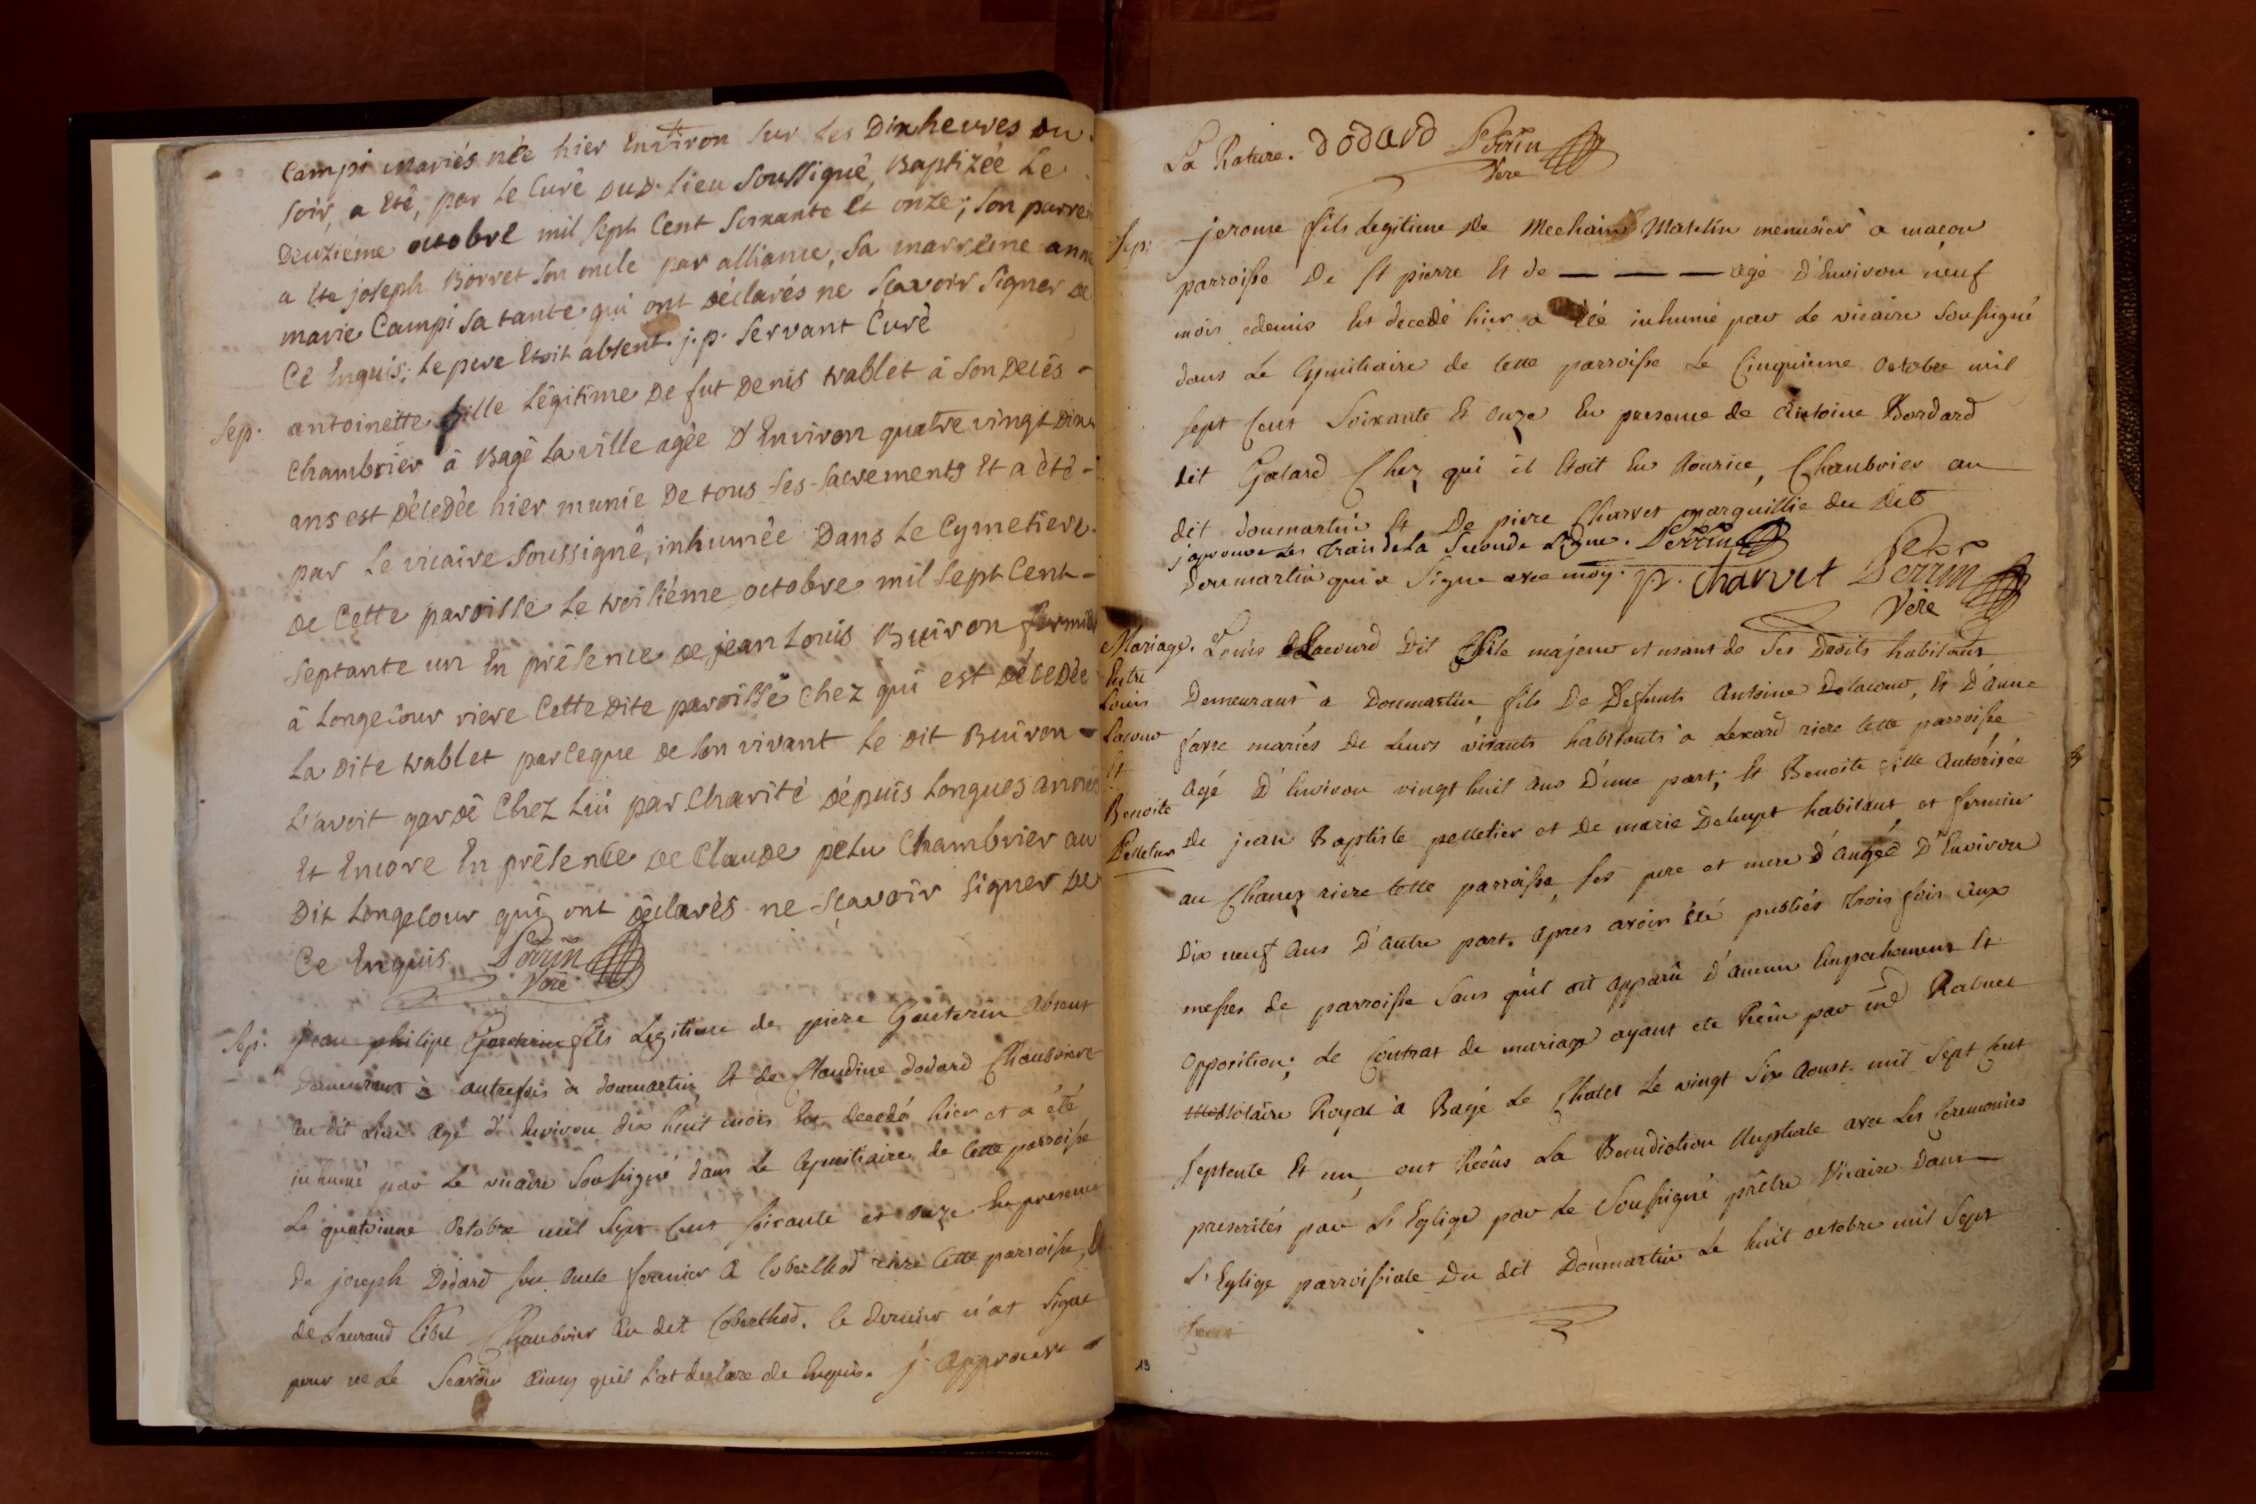 Campi mariés née hier Environ sur Les Dix heures Du
soir, a été, par Le Curé Dud. Lieu Soussigné, Baptizée Le
Deuxiéme octobre mil sept Cent soixante Et onze; son parrein
a été joseph Borret son oncle par alliance, sa marreine anne
marie Campi sa tante qui ont déclarés ne sçavoir signer de
Ce Enquis; Le pere Etoit absent. j. p. servant Curé
Sep. antoinette fille Légitime De fut Denis trablet à son Décès -
Chambrier à Bagé La ville agée D'Environ quatre vingt Dix
ans est Décédée hier munie De tous ses sacrements Et a été -
par Le vicaire Soussigné, inhumée Dans Le Cymetiere
de Cette paroisse Le troisiéme octobre mil sept Cent -
septante un En présence de jean Louis Buiron fermier
à Longecour riere Cette Dite paroisse Chez qui est décédée
La Dite trablet parceque de son vivant Le Dit Buiron -
L'avoit gardé Chez Lui par Charité dépuis Longues années
Et Encore En présence De Claude pelu Chambrier au
Dit Longecour qui ont déclarés ne sçavoir signer de
Ce Enquis Perrin
Vire
Sep. jean philipe fils Legitime de piere Gauterin absent
Demeurant à autrefois à dommartin Et de Claudine dodard Chambriere
au dit Lieu agé d'Environ dix huit mois Est decedé hier et a été
inhumé par Le vicaire Soussigné dans Le Cymitiaire de Cette parroisse
Le quatrieme Octobre mil Sept Cent soixante et onze En presence
de joseph Dodard son oncle fermier a Coberthod riere Cette parroisse, Et
de Laurand Chambrier au dit Coberthod. le dernier n'at signé
pour ne Le Scavoir ainsy quil L'at declaré de Enquis. j'approuve
La Rature. dodard Perrin
Vire
Sep: jerome fils Legitime de Mechain Maselin menusier à macon
parroisse De St pierre Et de — — — agé D'Environ neuf
mois edemis Est decedé hier a été inhumé par Le vicaire Soussigné
dans Le Cymitiaire de Cette parroisse Le Cinquieme Octobre mil
sept Cent Soixante Et Onze En presence de Antoine Bordard
dit Galard Chez qui il Etoit En Nourice, Chambrier au
dit doumartin Et De piere Charvet marguillie du dit
j'aprouve Les trais de La Seconde Ligne. Perrin
Doumartin qui a Signe avec moy. p. Charvet Perrin
Vire
Mariage.
Entre
Louis
Lacour
Et
Benoite
Pelletier
Louis Delacourd Dit majeur et usant de Ses Droits habitant
Demeurant à Doumartin fils De Defunts Antoine Delacour, Et D'anne
favre mariés De Leurs vivants habitants à Lexard riere Cette parroisse
Agé D'Environ vingt huit ans D'une part; Et Benoite fille Autorisée
De jean Baptiste pelletier et De marie Deluyet habitant et fermier
au Chanex riere Cette parroisse Ses pere et mere D'angée D'Environ
Dix neuf ans D'autre part. Apres avoir été publiés trois fois Eux
messes de parroisse Sans quil ait apparû d'aucun Empechement Et
Opposition; Le Contrat de mariage ayant ete Reçu par me Ralnet
Notaire Royal à Bagé Le Chatel Le vingt Six Aoust mil Sept Cent
Septente Et un, ont Reçûs La Benediction Nuptiale avec Les Ceremonies
prescrités par L'Eglige par Le Soussigné prêtre Vicaire Dans
L'Eglige parroissiale Du dit Doumartin Le huit octobre mil Sept
13